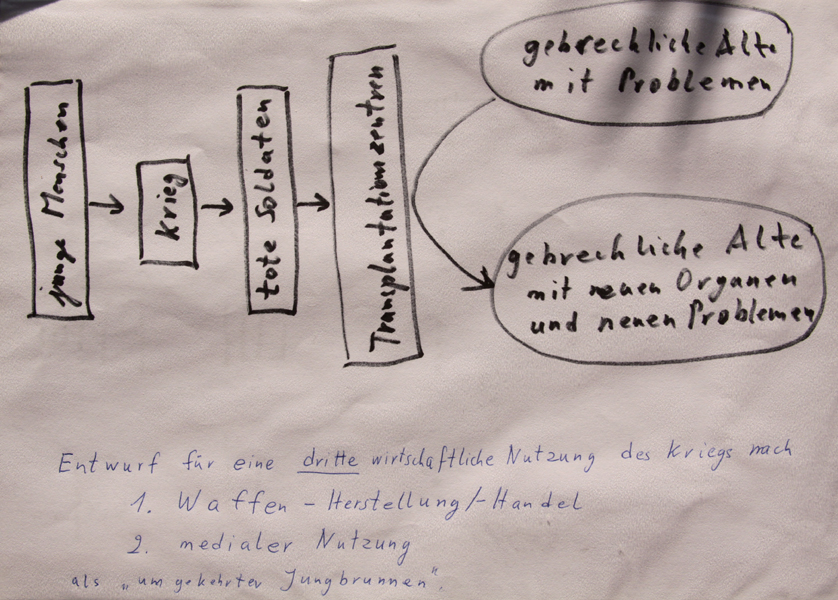 junge Menschen
Krieg
tote Soldaten
Transplantationszentren
gebrechliche Alte
mit Problemen
gebrechliche Alte
mit neuen Organen
und neuen Problemen
Entwurf für eine dritte wirtschaftliche Nutzung des Kriegs nach
1. Waffen - Herstellung/-Handel
2. medialer Nutzung
als „umgekehrter Jungbrunnen".